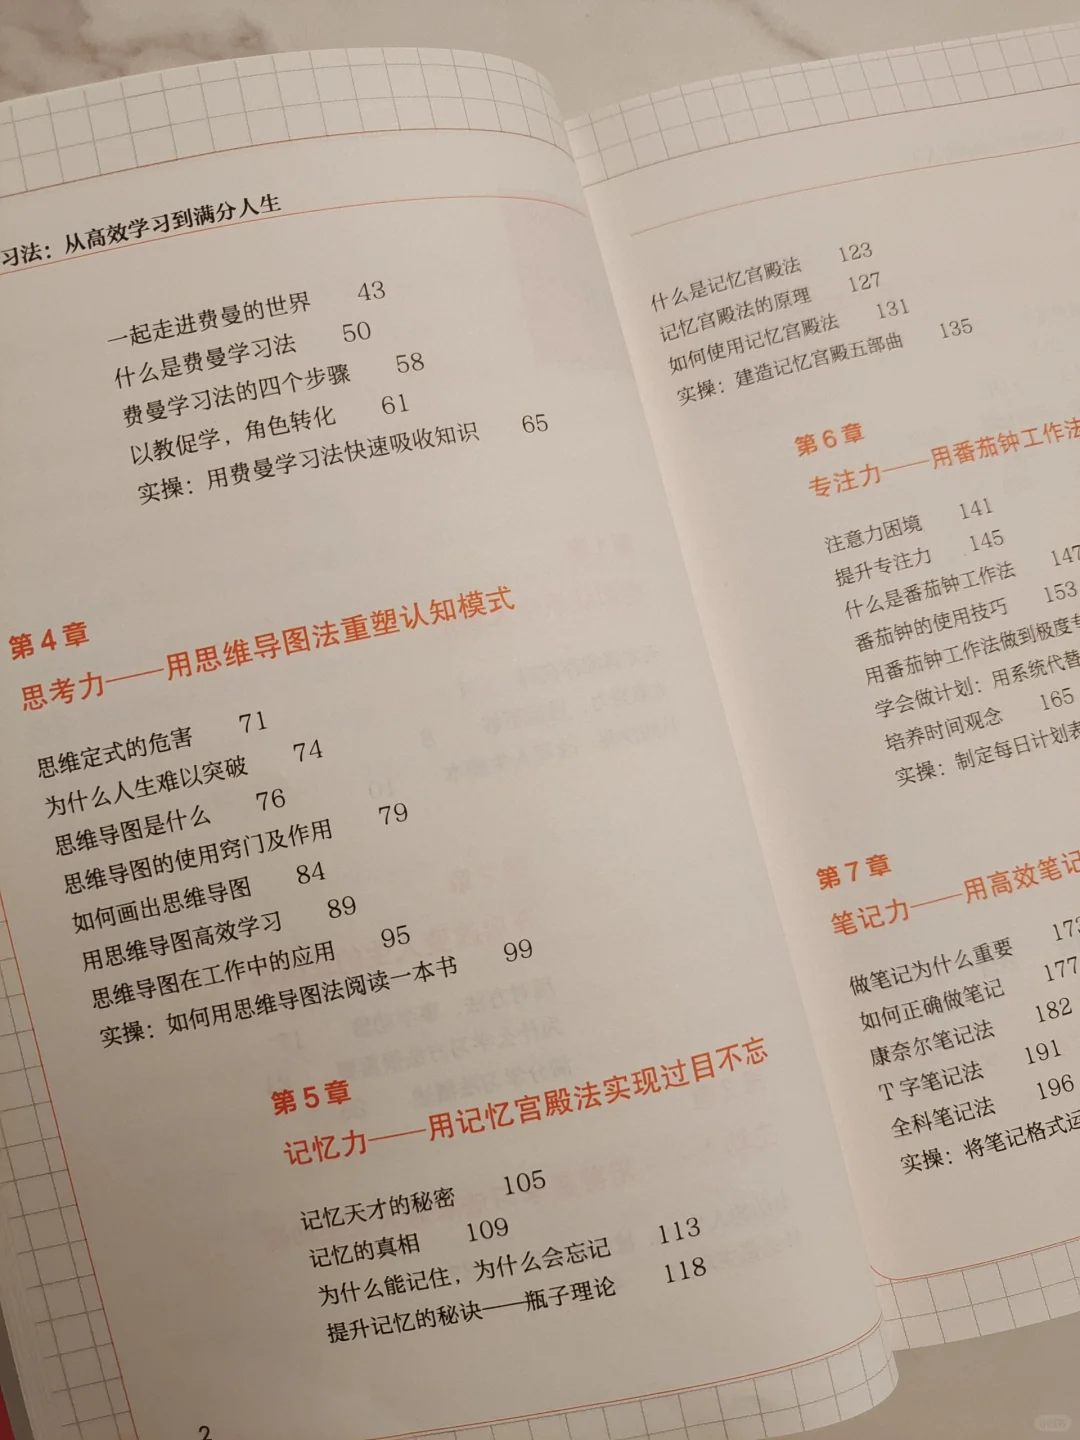 习法：从高效学习到满分人生
一起走进费曼的世界 43
什么是费曼学习法 50
费曼学习法的四个步骤 58
以教促学，角色转化 61
实操：用费曼学习法快速吸收知识 65
第4章
思考力——用思维导图法重塑认知模式
思维定式的危害 71
为什么人生难以突破 74
思维导图是什么 76
思维导图的使用窍门及作用 79
如何画出思维导图 84
用思维导图高效学习 89
思维导图在工作中的应用 95
实操：如何用思维导图法阅读一本书 99
第5章
记忆力——用记忆宫殿法实现过目不忘
记忆天才的秘密 105
记忆的真相 109
为什么能记住，为什么会忘记 113
提升记忆的秘诀——瓶子理论 118
2
什么是记忆宫殿法 123
记忆宫殿法的原理 127
如何使用记忆宫殿法 131
实操：建造记忆宫殿五部曲 135
第6章
专注力——用番茄钟工作法
注意力困境 141
提升专注力 145
什么是番茄钟工作法 147
番茄钟的使用技巧 153
用番茄钟工作法做到极度专
学会做计划：用系统代替
培养时间观念 165
实操：制定每日计划表
第7章
笔记力——用高效笔记
做笔记为什么重要 173
如何正确做笔记 177
康奈尔笔记法 182
T字笔记法 191
全科笔记法 196
实操：将笔记格式运